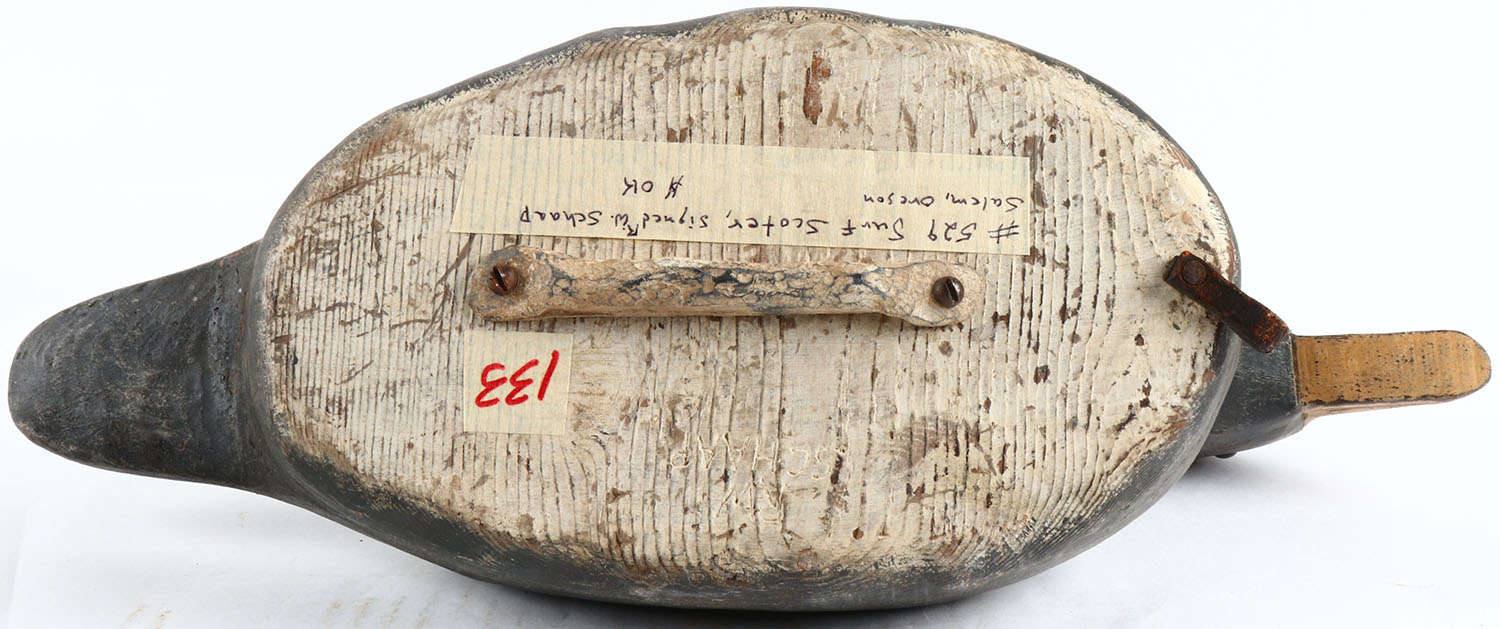 # 529 Surf Scoter, signed R.W. Schaap
Salem, Oregon
# OK
133
SCHAAP